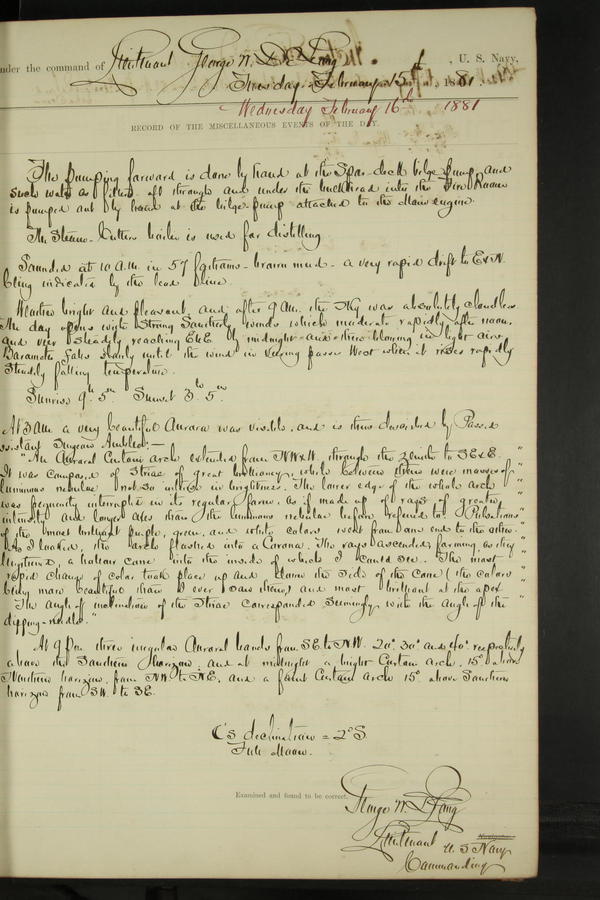 under the command of Lieutenant George W. De Long, U. S. Navy,
Tuesday, February 15th, 1881.
Wednesday February 16th 1881
RECORD OF THE MISCELLANEOUS EVENTS OF THE DAY.
The Pumping forward is done by hand at the Spar-deck bilge pump, and
such water as filters aft through and under the bulkhead into the Fire Room
is pumped out by hand at the bilge-pump attached to the Main engine.
The Steam-Cutters boiler is used for distilling
Sounded at 10 A.M. in 57 fathoms - brown mud - a very rapid drift to
being indicated by the lead line.
Weather bright and pleasant, and after 9 AM. the sky was absolutely cloudless
The day opens with strong Southerly winds which moderate rapidly after noon,
and veer steadily reaching by midnight and then blowing in light airs
Barometer falls slowly until the wind in veering passes West when it rises rapidly
Steadily falling temperature.
Sunrise 9h 5m Sunset 3h 5m
At 3 AM a very beautiful Aurora was visible, and is thus described by Passed
Assistant Surgeon Ambler:—
"An Auroral Curtain arch extended from NWxW. through the zenith to SExE.
It was composed of Striae of great brilliancy, while between them were masses of
luminous nebulae not so intense in brightness. The lower edge of the whole arch
was frequently interrupted in its regular form, as if made up of rays of greater
intensity and longer axes than the luminous nebulae before referred to. Pulsations
of the most brilliant purple, green, and white colors went from one end to the other.
As I looked, the arch flashed into a Corona. The rays ascended, forming, as they
lengthened, a hollow cone into the inside of which I could see. The most
rapid change of color took place up and down the side of the cone (the colors
being more beautiful than I ever saw them) and most brilliant at the apex
The angle of inclination of the Striae corresponded seemingly, with the angle of the
dipping-needle."
At 9 Pm. three irregular Auroral bands from SE. to NW. 20°, 30° and 40° respectively
above the Southern horizon; and at midnight a bright Curtain Arch, 15° above
Northern horizon, from NW to NE, and a faint Curtain arch 15° above Southern
horizon from SW. to SE.
☾'s declination = 2° S.
Full Moon.
Examined and found to be correct.
George W. De Long
Lieutenant U. S Navy
Commanding